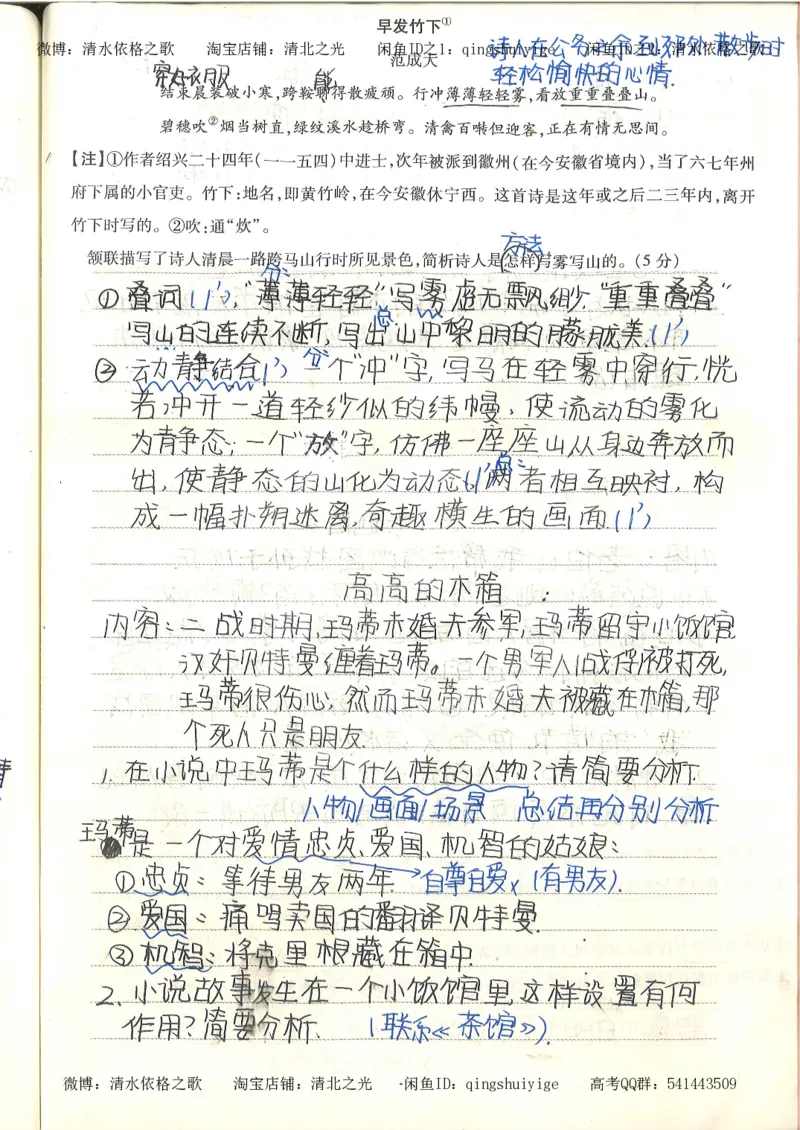 早发竹下①
微博：清水依格之歌 淘宝店铺：清北之光 闲鱼ID之1：qingshuiyige 闲鱼ID之2：清水依格之歌
范成大
诗人在公务之余到郊外散步时
轻松愉快的心情.
穿好衣服 能
结束晨装破小寒,跨鞍聊得散疲顽。行冲薄薄轻轻雾,看放重重叠叠山。
碧穗吹②烟当树直,绿纹溪水趁桥弯。清禽百啭似迎客,正在有情无思间。
【注】①作者绍兴二十四年(一一五四)中进士,次年被派到徽州(在今安徽省境内),当了六七年州
府下属的小官吏。竹下:地名,即黄竹岭,在今安徽休宁西。这首诗是这年或之后二三年内,离开
竹下时写的。②吹:通“炊”。
方法
颔联描写了诗人清晨一路跨马山行时所见景色,简析诗人是怎样写雾写山的。(5分)
分:
①叠词(1')，“薄薄轻轻”写雾虚无飘缈. “重重叠叠”
总:
写山的连续不断,写出山中黎明的朦胧美.(1')
②动静结合(1') 分:一个“冲”字,写马在轻雾中穿行,恍
若冲开一道轻纱似的纬幔、使流动的雾化
为静态;一个“放”字,仿佛一座座山从身边奔放而
出,使静态的山化为动态.(1')总:两者相互映衬,构
成一幅扑朔迷离,奇趣横生的画面.(1')
高高的木箱
内容:二战时期,玛蒂未婚夫参军,玛蒂留守小饭馆
汉奸贝特曼缠着玛蒂。一个男军人(战俘)被打死,
玛蒂很伤心,然而玛蒂未婚夫被藏在木箱,那
个死人只是朋友.
1.在小说中玛蒂是个什么样的人物?请简要分析.
人物/画面/场景 总结再分别分析
玛蒂是一个对爱情忠贞、爱国、机智的姑娘:
①忠贞:等待男友两年.→自尊自爱x(有男友).
②爱国:痛骂卖国的翻译贝特曼.
③机智:将克里根藏在箱中.
2.小说故事发生在一个小饭馆里,这样设置有何
作用?简要分析. (联系《茶馆》).
微博：清水依格之歌 淘宝店铺：清北之光 闲鱼ID：qingshuiyige 高考QQ群：541443509